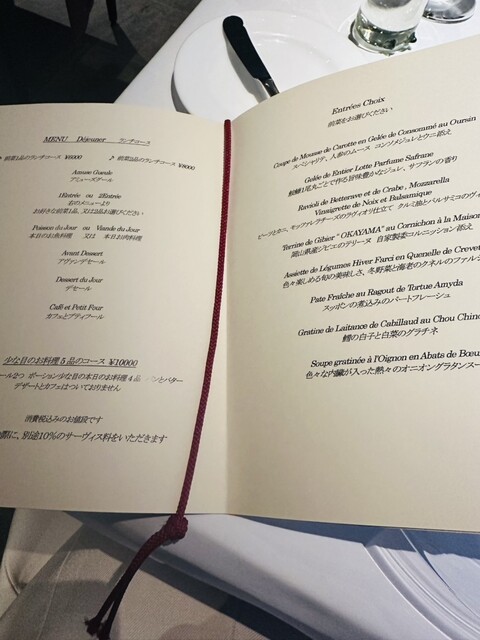 MENU Déjeuner ランチコース
♪ 前菜1品のランチコース ¥6000 ♪ 前菜2品のランチコース ¥8000
Amuse Gueule
アミューズグール
1Entrée ou 2Entrée
右のメニューより
お好きな前菜1品、又は2品お選びください
Poisson du Jour ou Viande du Jour
本日のお魚料理 又は 本日お肉料理
Avant Dessert
アヴァンデセール
Dessert du Jour
デセール
Café et Petit Four
カフェとプティフール
少な目のお料理5品のコース ¥10000
ポーション少な目の本日のお料理4品 パンとバター
デザートとカフェはついておりません
消費税込みのお値段です
に、別途10%のサーヴィス料をいただきます
Entrées Choix
前菜をお選びください
Coupe de Mousse de Carotte en Gelée de Consommé au Oursin
スペシャリテ、人参のムース コンソメジュレとウニ添え
Gelée de Entier Lotte Parfume Safrane
鮟鱇1尾丸ごとで作る旨味豊かなジュレ、サフランの香り
Ravioli de Betterave et de Crabe , Mozzarella
Vinaigrette de Noix et Balsamique
ビーツとカニ、モッツァレラチーズのラヴィオリ仕立て クルミ油とバルサミコのヴィ
Terrine de Gibier " OKAYAMA" au Cornichon à la Maison
岡山県産ジビエのテリーヌ 自家製柔コルニッション添え
Assiette de Légumes Hiver Farci en Quenelle de Crevet
色々楽しめる旬の美味しさ、冬野菜と海老のクネルのファルシ
Pate Fraîche au Ragout de Tortue Amyda
スッポンの煮込みのパートフレーシュ
Gratine de Laitance de Cabillaud au Chou Chino
鱈の白子と白菜のグラチネ
Soupe gratinée à l'Oignon en Abats de Bœu
色々な内臓が入った熱々のオニオングラタンスー